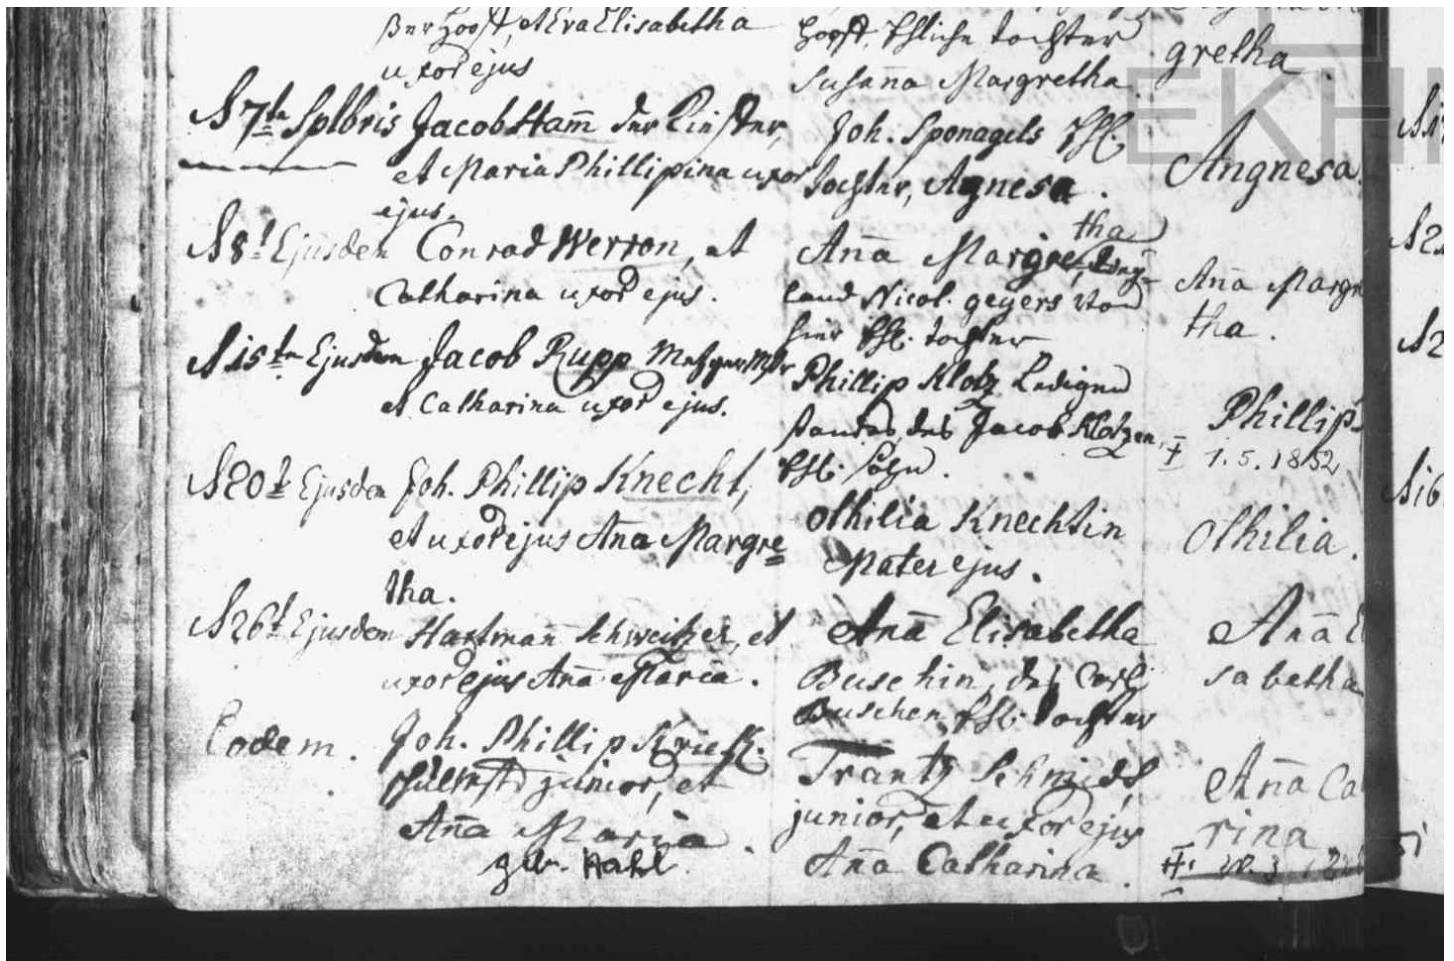 et Eva Elisabetha
uxor ejus
tochter
Susan̄a Margretha
gretha
d 7te Sptbris Jacob Ham̄ der
et Maria Phillipina uxor
ejus.
Joh. Sponagels Ehl.
tochter, Agnesa.
Angnesa.
d 8t Ejusdem Conrad Werron, et
Catharina uxor ejus.
An̄a Margretha
Nicol. geyers von
hier Ehl. tochter
An̄a Margr
tha.
d 15te Ejusdem Jacob Rupp Metzger Mstr
et Catharina uxor ejus.
Phillip Klotz Ledigen
standes, des Jacob Klotzen,
Ehl. Sohn.
Phillip
1.5.1852
d 20t Ejusdem Joh. Phillip Knecht,
et uxor ejus An̄a Margre=
tha.
Othilia Knechtin
Mater ejus.
Othilia.
d 26t Ejusdem Hartman̄ Schweitzer, et
uxor ejus An̄a Maria.
An̄a Elisabetha
Buschin, des Carl
Buschen, Ehl. tochter
An̄a E
sabetha
Eodem.
Joh. Phillip
junior, et
An̄a Maria.
geb. Hahl.
Frantz Schmidt
junior, et uxor ejus
An̄a Catharina.
An̄a Ca
rina
EKH